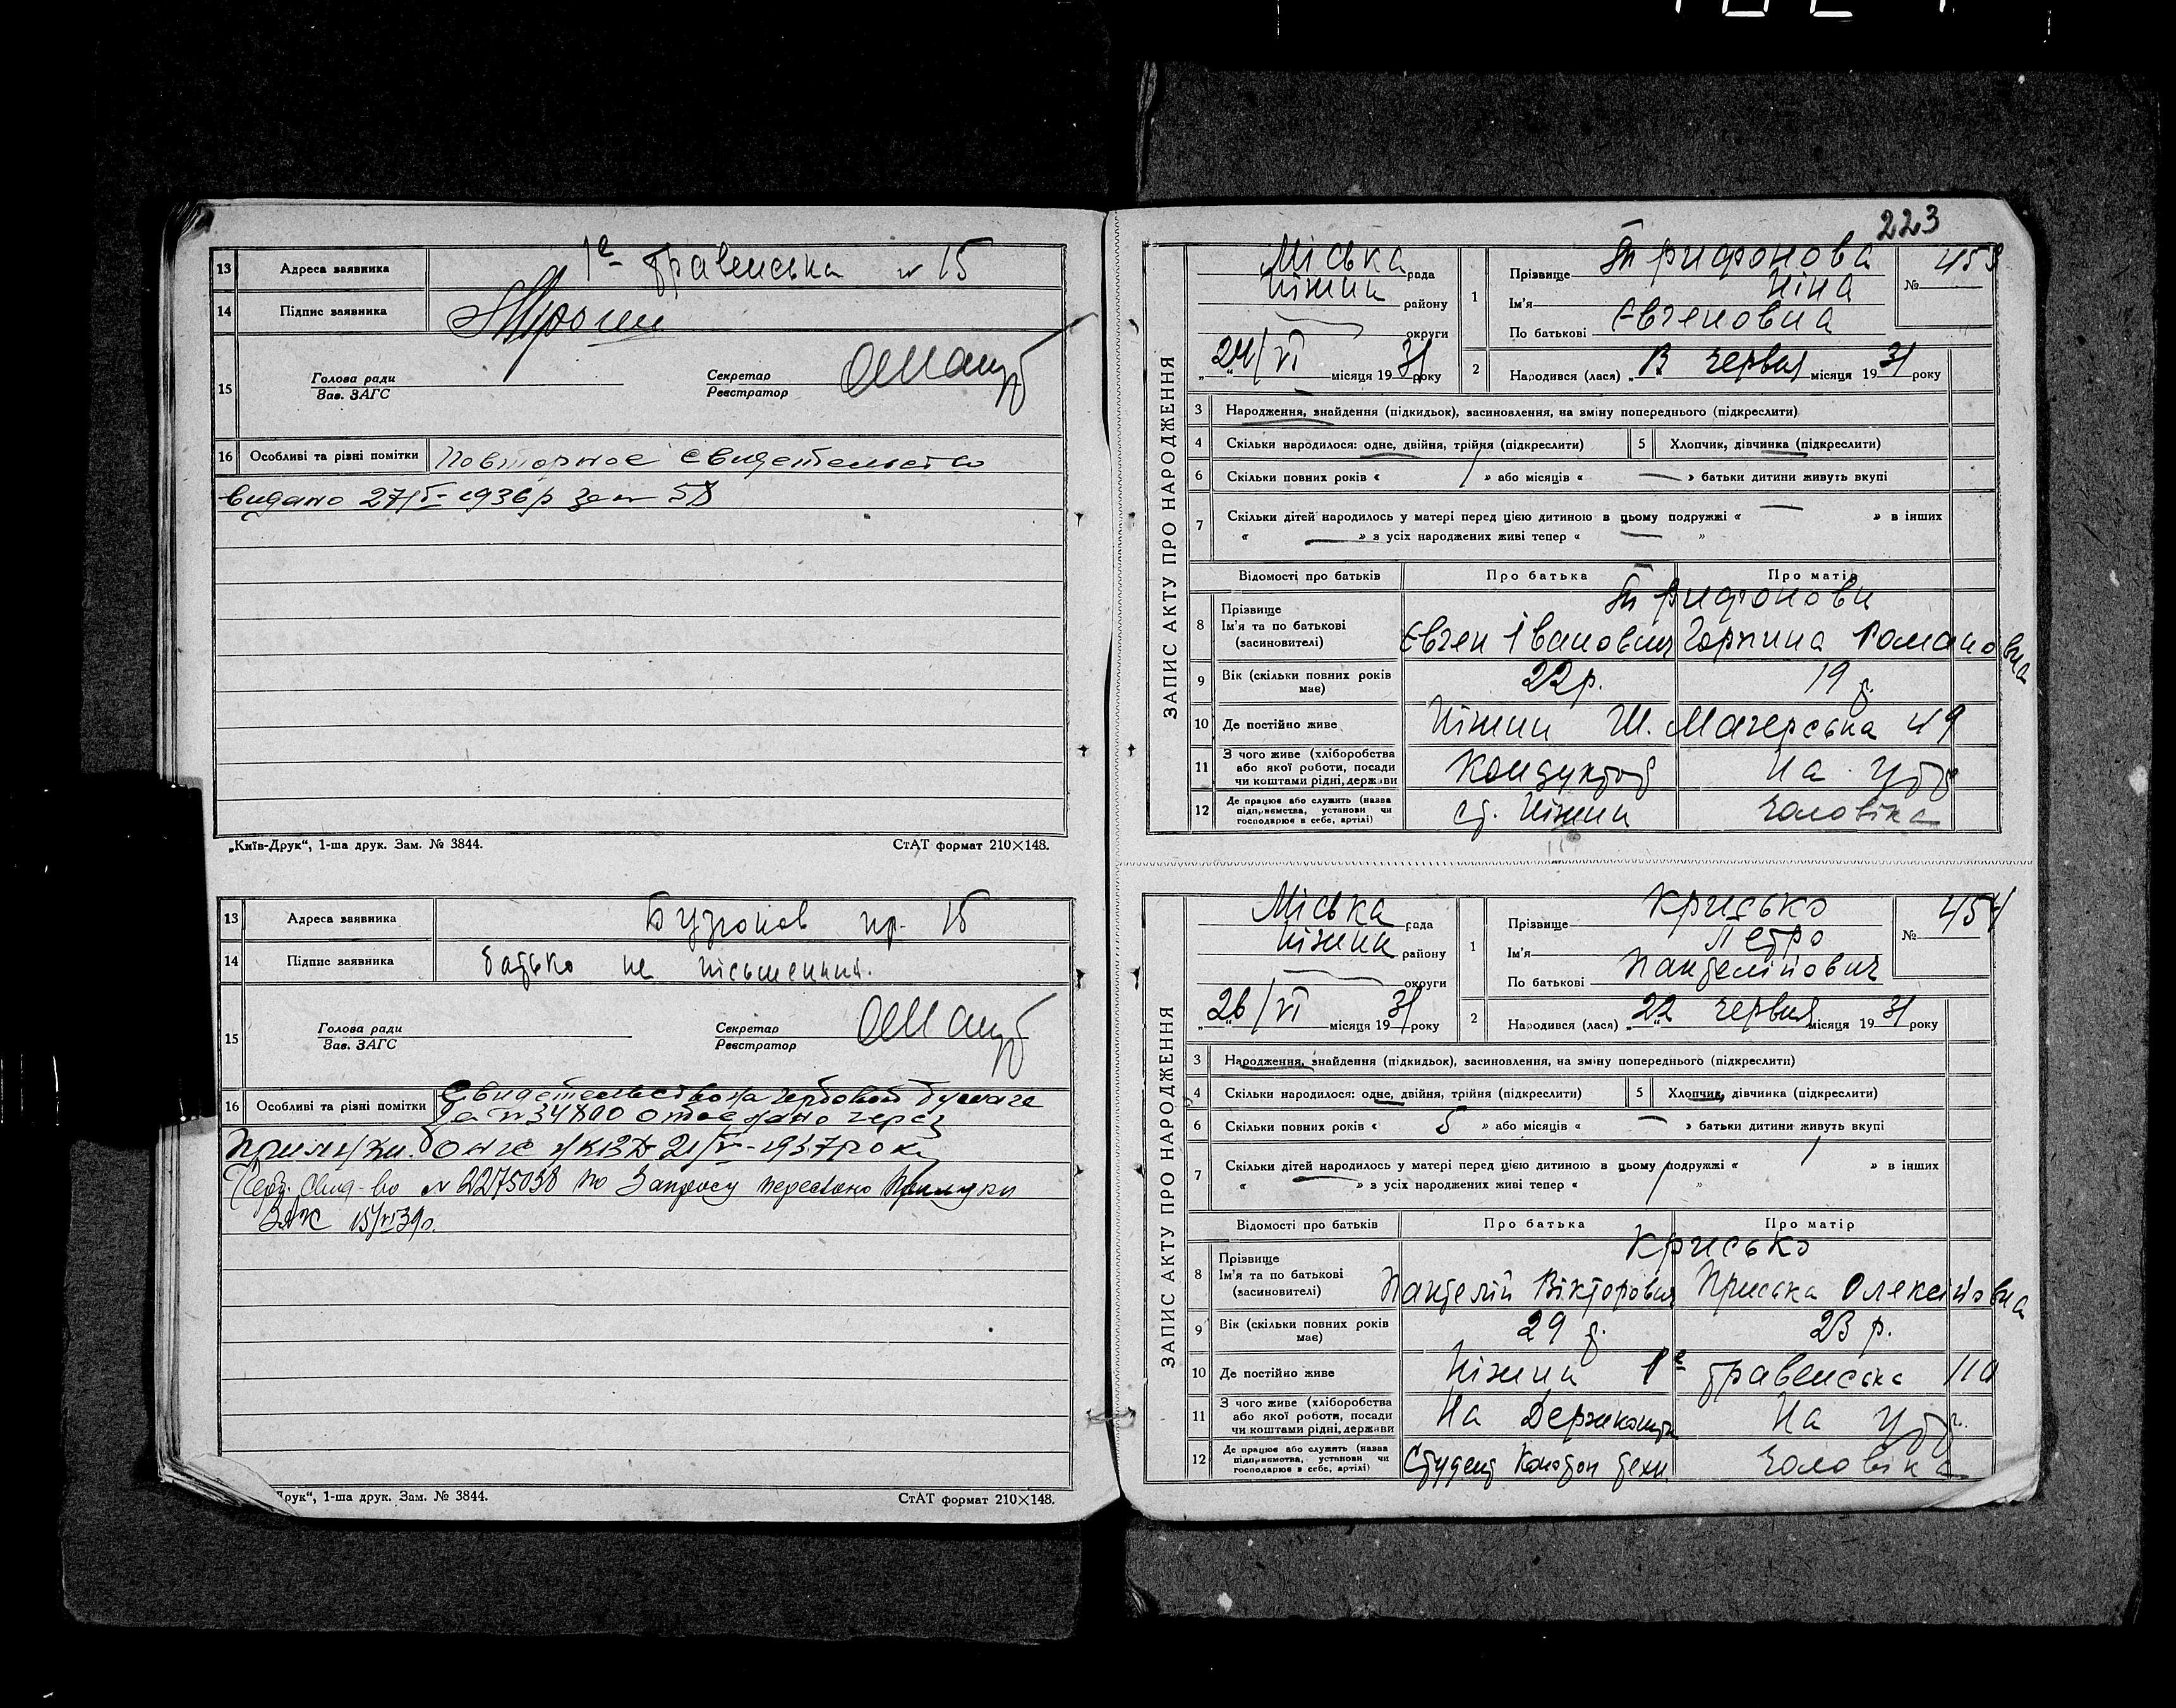 13 Адреса заявника 1а Гравенська № 15
14 Підпис заявника
15 Голова ради
Зав. ЗАГС
Секретар
Реєстратор
16 Особливі та різні помітки Повторное свидетельство
видано 27/V-1936 р за № 58
„Київ-Друк“, 1-ша друк. Зам. № 3844. СтАТ формат 210×148.
13 Адреса заявника пр. 15
14 Підпис заявника батько не письменний.
15 Голова ради
Зав. ЗАГС
Секретар
Реєстратор
16 Особливі та різні помітки Свидетельство на гербовой бумаге
За № 34800 отослано через
21/V-1937 року
Свид-во № 2275038 по Запросу переслано Прилуки
15/VI 39 р.
Друк“, 1-ша друк. Зам. № 3844. СтАТ формат 210×148.
223
ЗАПИС АКТУ ПРО НАРОДЖЕННЯ
Міська рада
Ніжин району
округи
24/VI місяця 1931 року
1 Прізвище Трифонова
Ім'я Ніна
По батькові Євгеновна
№ 453
2 Народився (лася) „ червня місяця 1931 року
3 Народження, знайдення (підкидьок), засиновлення, на зміну попереднього (підкреслити)
4 Скільки народилося: одне, двійня, трійня (підкреслити) 5 Хлопчик, дівчинка (підкреслити)
6 Скільки повних років « 1 » або місяців « — » батьки дитини живуть вкупі
7 Скільки дітей народилось у матері перед цією дитиною в цьому подружжі « — » в інших
« — » з усіх народжених живі тепер « — »
Відомості про батьків Про батька Про матір
8 Прізвище Трифонови
Ім'я та по батькові Євген Іванович Горпина Романовна
(засиновителі)
9 Вік (скільки повних років має) 22 р. 19 р.
10 Де постійно живе Ніжин Ш. Магерська 49
11 З чого живе (хліборобства або якої роботи, посади чи коштами рідні, держави Кондуктор На утр.
12 Де працює або служить (назва підприємства, установи чи господарює в себе, артілі) ст. Ніжин чоловіка
ЗАПИС АКТУ ПРО НАРОДЖЕННЯ
Міська рада
Ніжин району
округи
26/VI місяця 1931 року
1 Прізвище Крисько
Ім'я Петро
По батькові Пантелійович
№ 454
2 Народився (лася) „22 червня місяця 1931 року
3 Народження, знайдення (підкидьок), засиновлення, на зміну попереднього (підкреслити)
4 Скільки народилося: одне, двійня, трійня (підкреслити) 5 Хлопчик, дівчинка (підкреслити)
6 Скільки повних років « 5 » або місяців « — » батьки дитини живуть вкупі
7 Скільки дітей народилось у матері перед цією дитиною в цьому подружжі « 1 » в інших
« — » з усіх народжених живі тепер « 1 »
Відомості про батьків Про батька Про матір
8 Прізвище Крисько
Ім'я та по батькові Пантелій Вікторович Приська Олексійовна
(засиновителі)
9 Вік (скільки повних років має) 29 р. 23 р.
10 Де постійно живе Ніжин 1а Гравенська 110
11 З чого живе (хліборобства або якої роботи, посади чи коштами рідні, держави На Держкошти На утр.
12 Де працює або служить (назва підприємства, установи чи господарює в себе, артілі) Студент Конотоп техн. чоловіка